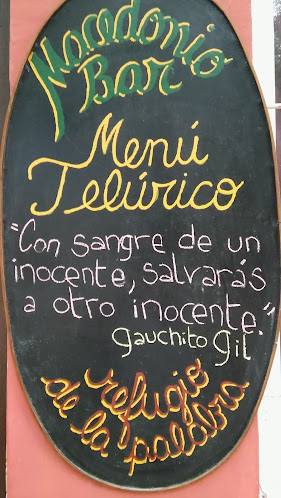 Macedonio
Bar
Menú
Telúrico
"Con sangre de un
inocente, salvarás
a otro inocente."
gauchito gil
refugio
de la palabra